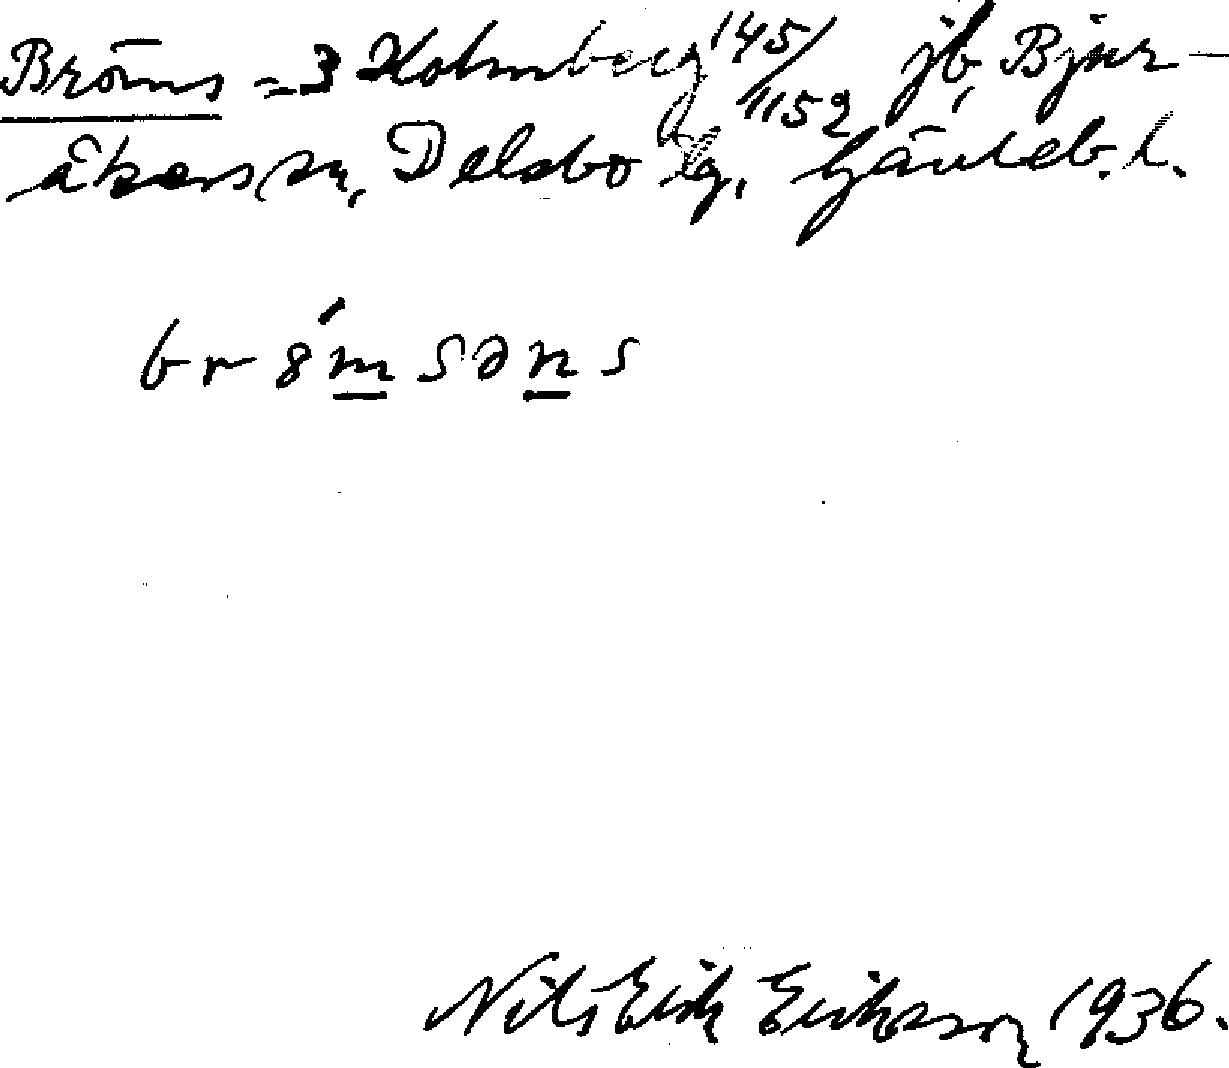 Bröms = 3 Holmberg 145/1152 jb, Bjur-
åkers sn, Delsbo tg, Gävleb. l.
br8́msəns
Nils Erik Eriksson 1936.